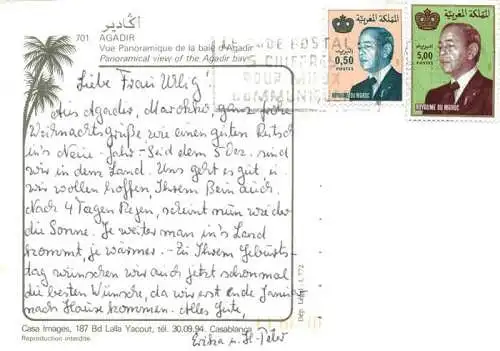 أڭادير
701 AGADIR
Vue Panoramique de la baie d'Agadir
Panoramical view of the Agadir bay
Liebe Frau Uhlig!
Aus Agadir, Marokko, ganz frohe
Weihnachtsgrüße wie einen guten Rutsch
in's Neue-Jahr - Seid dem 5 Dez. sind
wir in dem Land. Uns geht es gut u.
wir wollen hoffen, Ihrem Bein auch.
Nach 4 Tagen Regen, scheint nun wieder
die Sonne. Je weiter man in's Land
kommt, je wärmer. - Zu Ihrem Geburts-
dag wünschen wir auch jetzt schon mal
die besten Wünsche, da wir erst Ende Januar
nach Hause kommen. Alles Gute,
Erika u. H-Peter
Casa Images, 187 Bd Lalla Yacout, tél. 30.09.94. Casablanca
Reproduction interdite
Dép. Légal
المملكة المغربية
البريد
0,50
POSTES
ROYAUME DU MAROC
المملكة المغربية
5,00
البريد
POSTES
ROYAUME DU MAROC
LE CODE POSTAL
POUR MIEUX
COMMUNIQUER